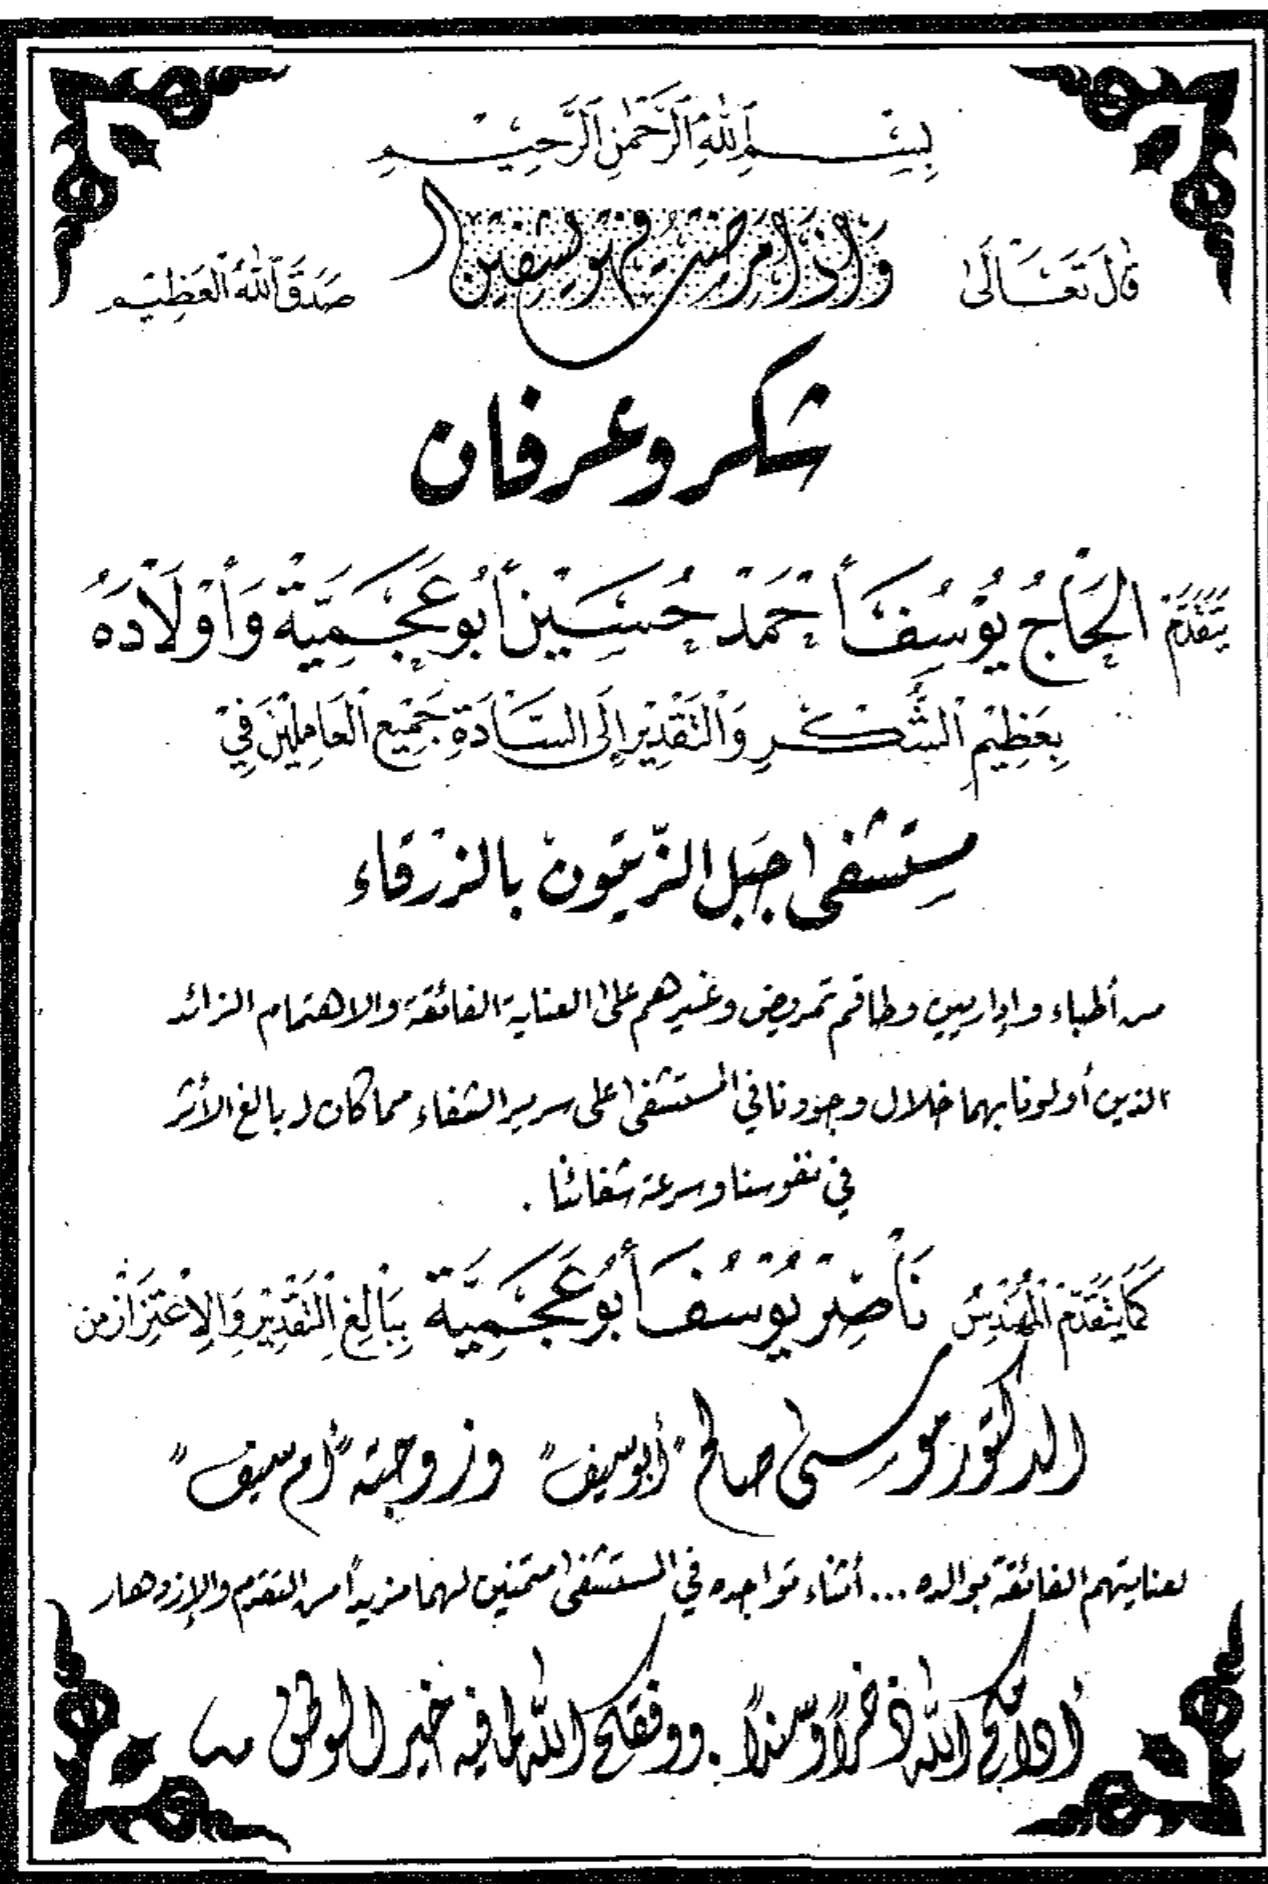 بِسْمِ اللهِ الرَّحْمٰنِ الرَّحِيْمِ
قَالَ تَعَالَىٰ وَاِذَا مَرِضْتُ فَهُوَ يَشْفِيْنِ صَدَقَ اللهُ الْعَظِيْم
شكر وعرفان
يَتَقَدَّمُ الْحَاجُّ يُوْسُفْ أَحْمَدْ حُسَيْن أَبُو عَجَمِيَّةْ وَأَوْلَادُهُ
بِعَظِيْمِ الشُّكْرِ وَالْتَقْدِيْرِ إِلَى السَّادَةِ جَمِيْعِ الْعَامِلِيْنَ فِيْ
مستشفى جبل الزّيتون بالزرقاء
من أطباء وإداريين وطاقم تمريض وغيرهم على العناية الفائقة والاهتمام الزائد
الذين أولونا بهما خلال وجودنا في المستشفى على سرير الشفاء مما كان له بالغ الأثر
في نفوسنا وسرعة شفائنا .
كَمَا يَتَقَدَّمُ الْمُهَنْدِسُ نَاْصِرْ يُوْسُفْ أَبُوْ عَجَمِيَّةْ بِبَالِغِ الْتَقْدِيْرِ وَالِاعْتِزَازِ من
الدكتور موسى صالح "أبو سيف" وزوجته "أم سيف"
لعنايتهم الفائقة بوالده ... أثناء تواجده في المستشفى متمنين لهما مزيداً من التقدم والإزدهار
أدامكم الله ذخراً وسنداً . ووفقكم الله لما فيه خير الوطن